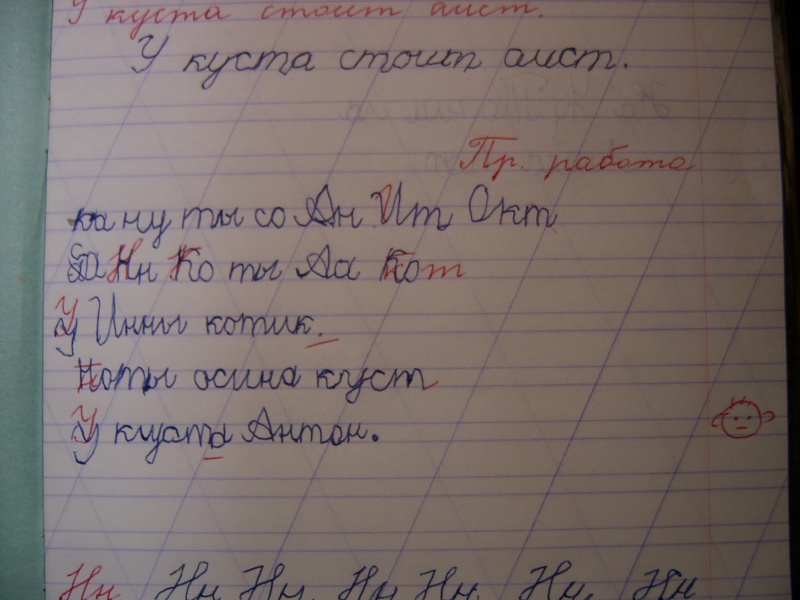 У куста стоит аист.
У куста стоит аист.
Пр. работа
ка ну ты со Ан Ит Окт
Нн Ко ты Аа Кот
У Инны котик.
Коты осина куст
У куста Антон.
Нн Нн Нн Нн Нн Нн Нн